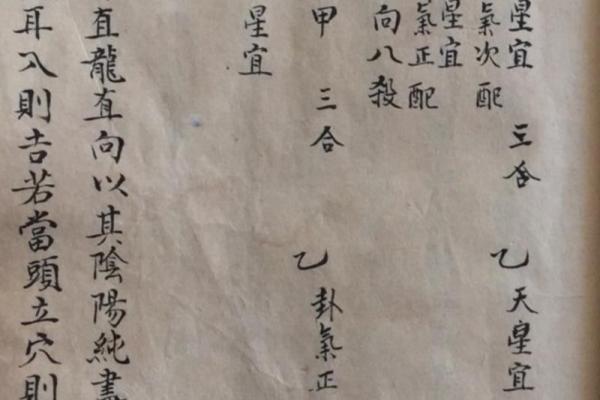 星宜 三合 乙天星宜
氣次配
星宜
氣正配
向八殺
甲 三合 乙卦氣正
星宜
直龍直向以其陰陽純
耳入則吉若當頭立穴則